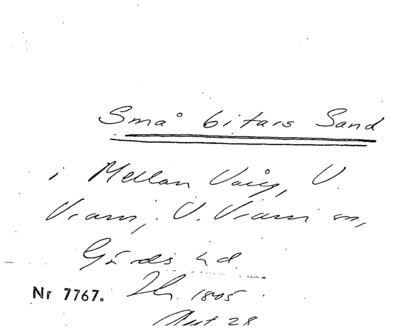 Små bitars Sand
i Mellan Vång, V.
Vram, V. Vram sn,
Gärds hd
Nr 7767. 1805
28